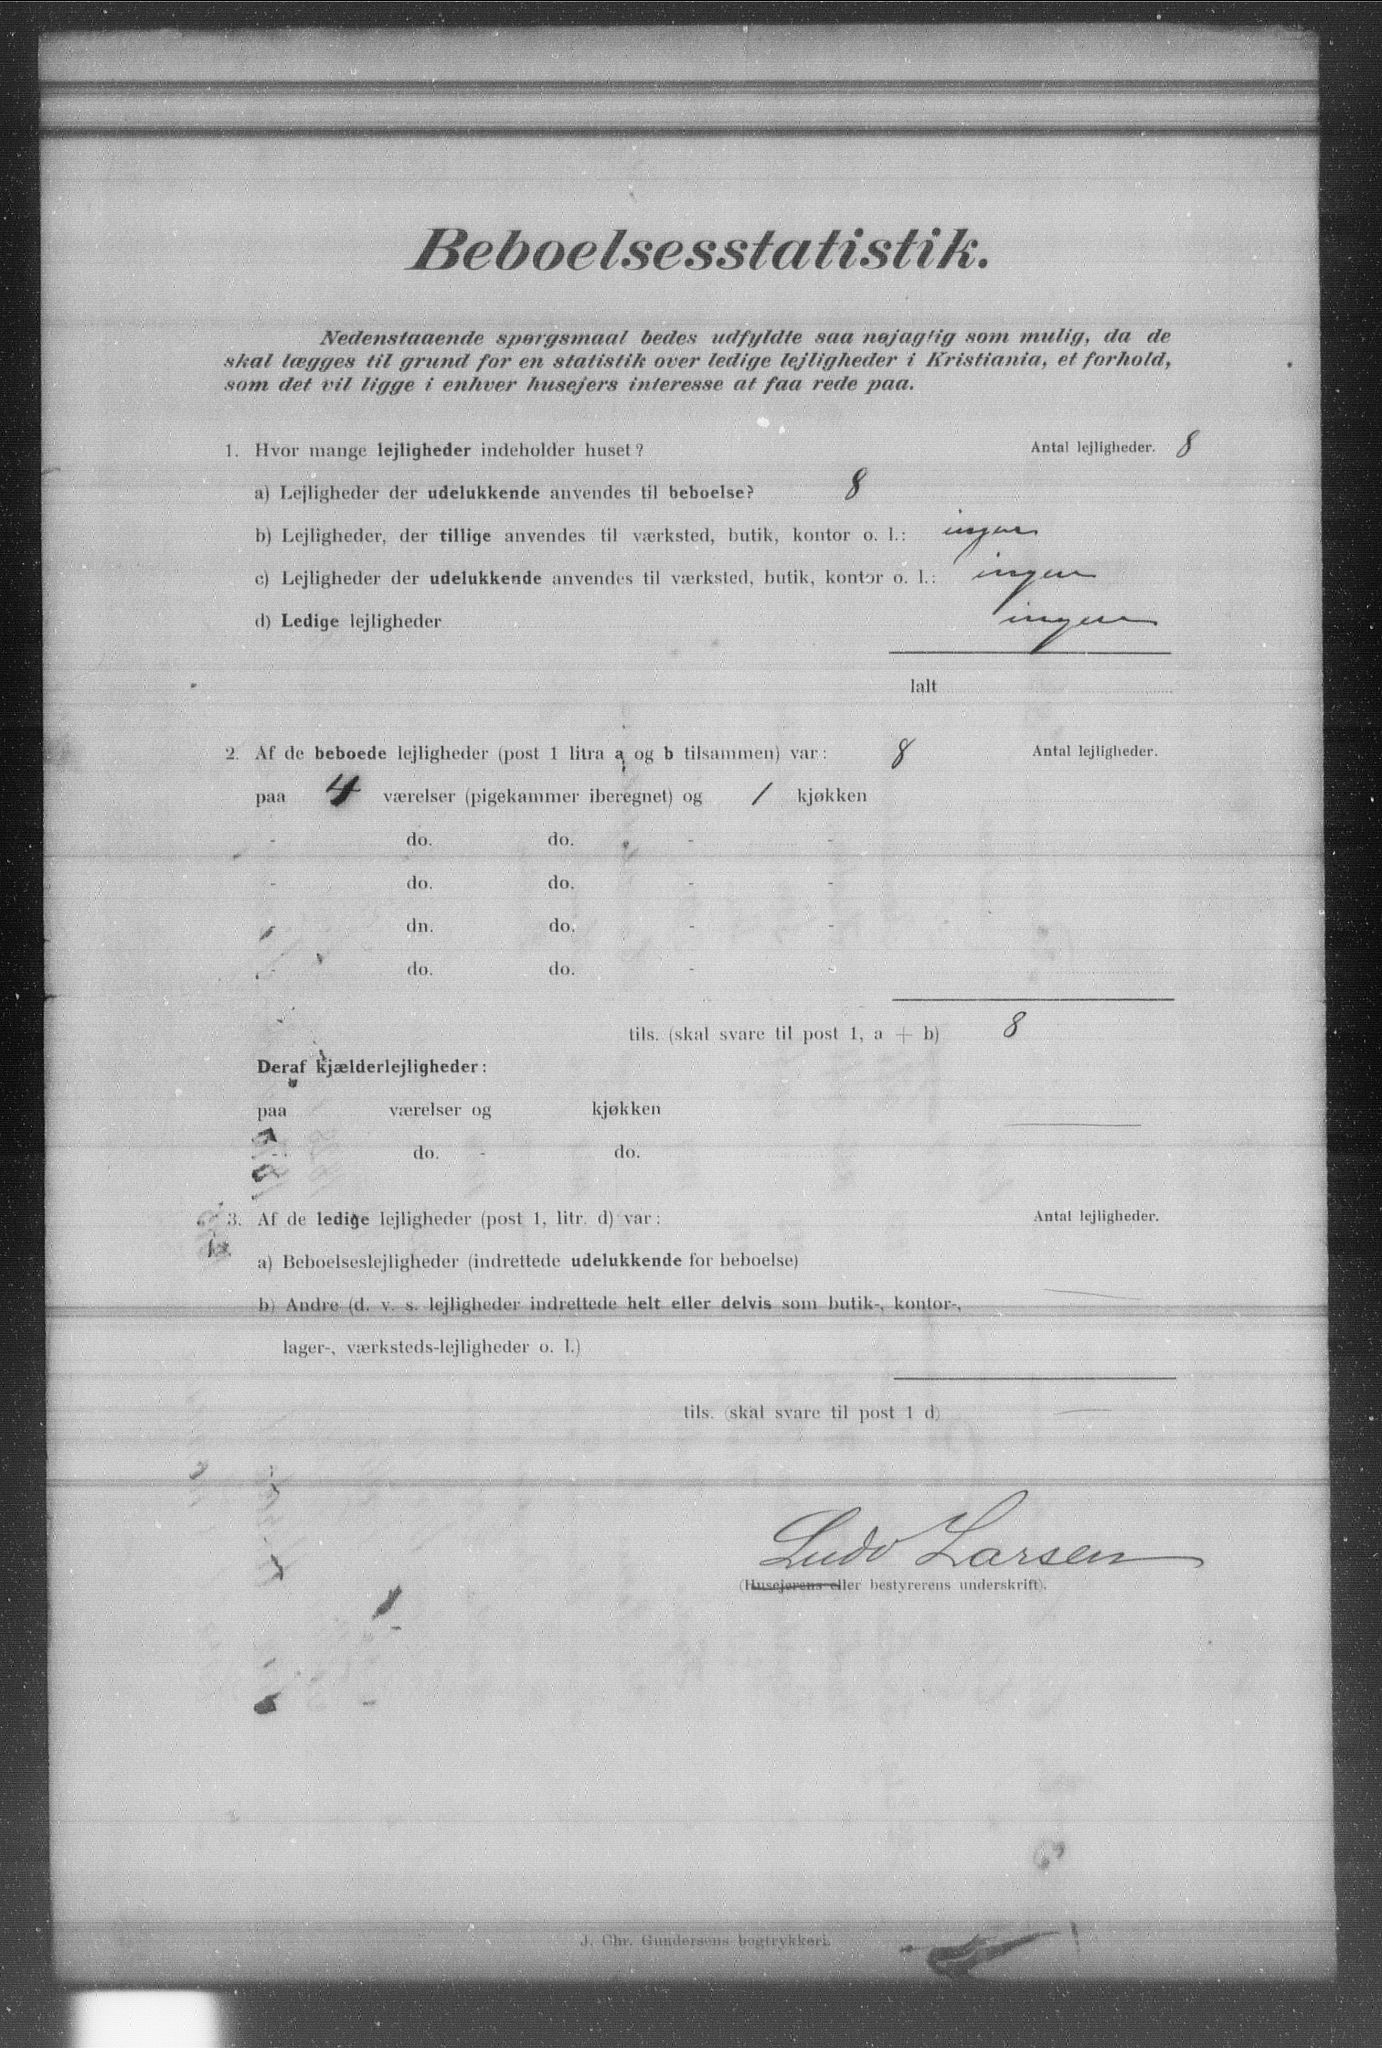 Beboelsesstatistik.
Nedenstaaende spørgsmaal bedes udfyldte saa nøjagtig som mulig, da de
skal lægges til grund for en statistik over ledige lejligheder i Kristiania, et forhold,
som det vil ligge i enhver husejers interesse at faa rede paa.
1. Hvor mange lejligheder indeholder huset? Antal lejligheder. 8
a) Lejligheder der udelukkende anvendes til beboelse? 8
b) Lejligheder, der tillige anvendes til værksted, butik, kontor o. l.: ingen
c) Lejligheder der udelukkende anvendes til værksted, butik, kontor o. l.: ingen
d) Ledige lejligheder ingen
Ialt
2. Af de beboede lejligheder (post 1 litra a og b tilsammen) var: 8 Antal lejligheder.
paa 4 værelser (pigekammer iberegnet) og 1 kjøkken
- do. do. - -
- do. do. - -
- dn. do. - -
- do. do. - -
tils. (skal svare til post 1, a + b) 8
Deraf kjælderlejligheder:
paa værelser og kjøkken
- do. - do.
3. Af de ledige lejligheder (post 1, litr. d) var: Antal lejligheder.
a) Beboelseslejligheder (indrettede udelukkende for beboelse)
b) Andre (d. v. s. lejligheder indrettede helt eller delvis som butik-, kontor-,
lager-, værksteds-lejligheder o. l.)
tils. (skal svare til post 1 d)
Ludv Larsen
(Husejerens eller bestyrerens underskrift).
J. Chr. Gundersens bogtrykkeri.